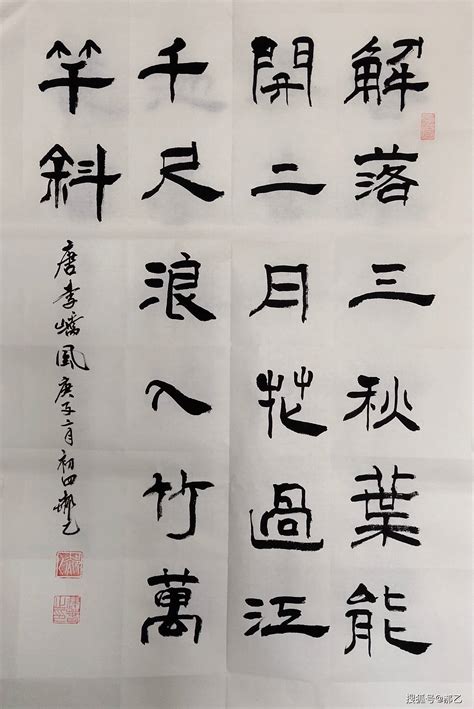 解落三秋葉能
開二月花過江
千尺浪入竹萬
竿斜
唐李嶠風庚子二月初四郝乙
搜狐号@郝乙